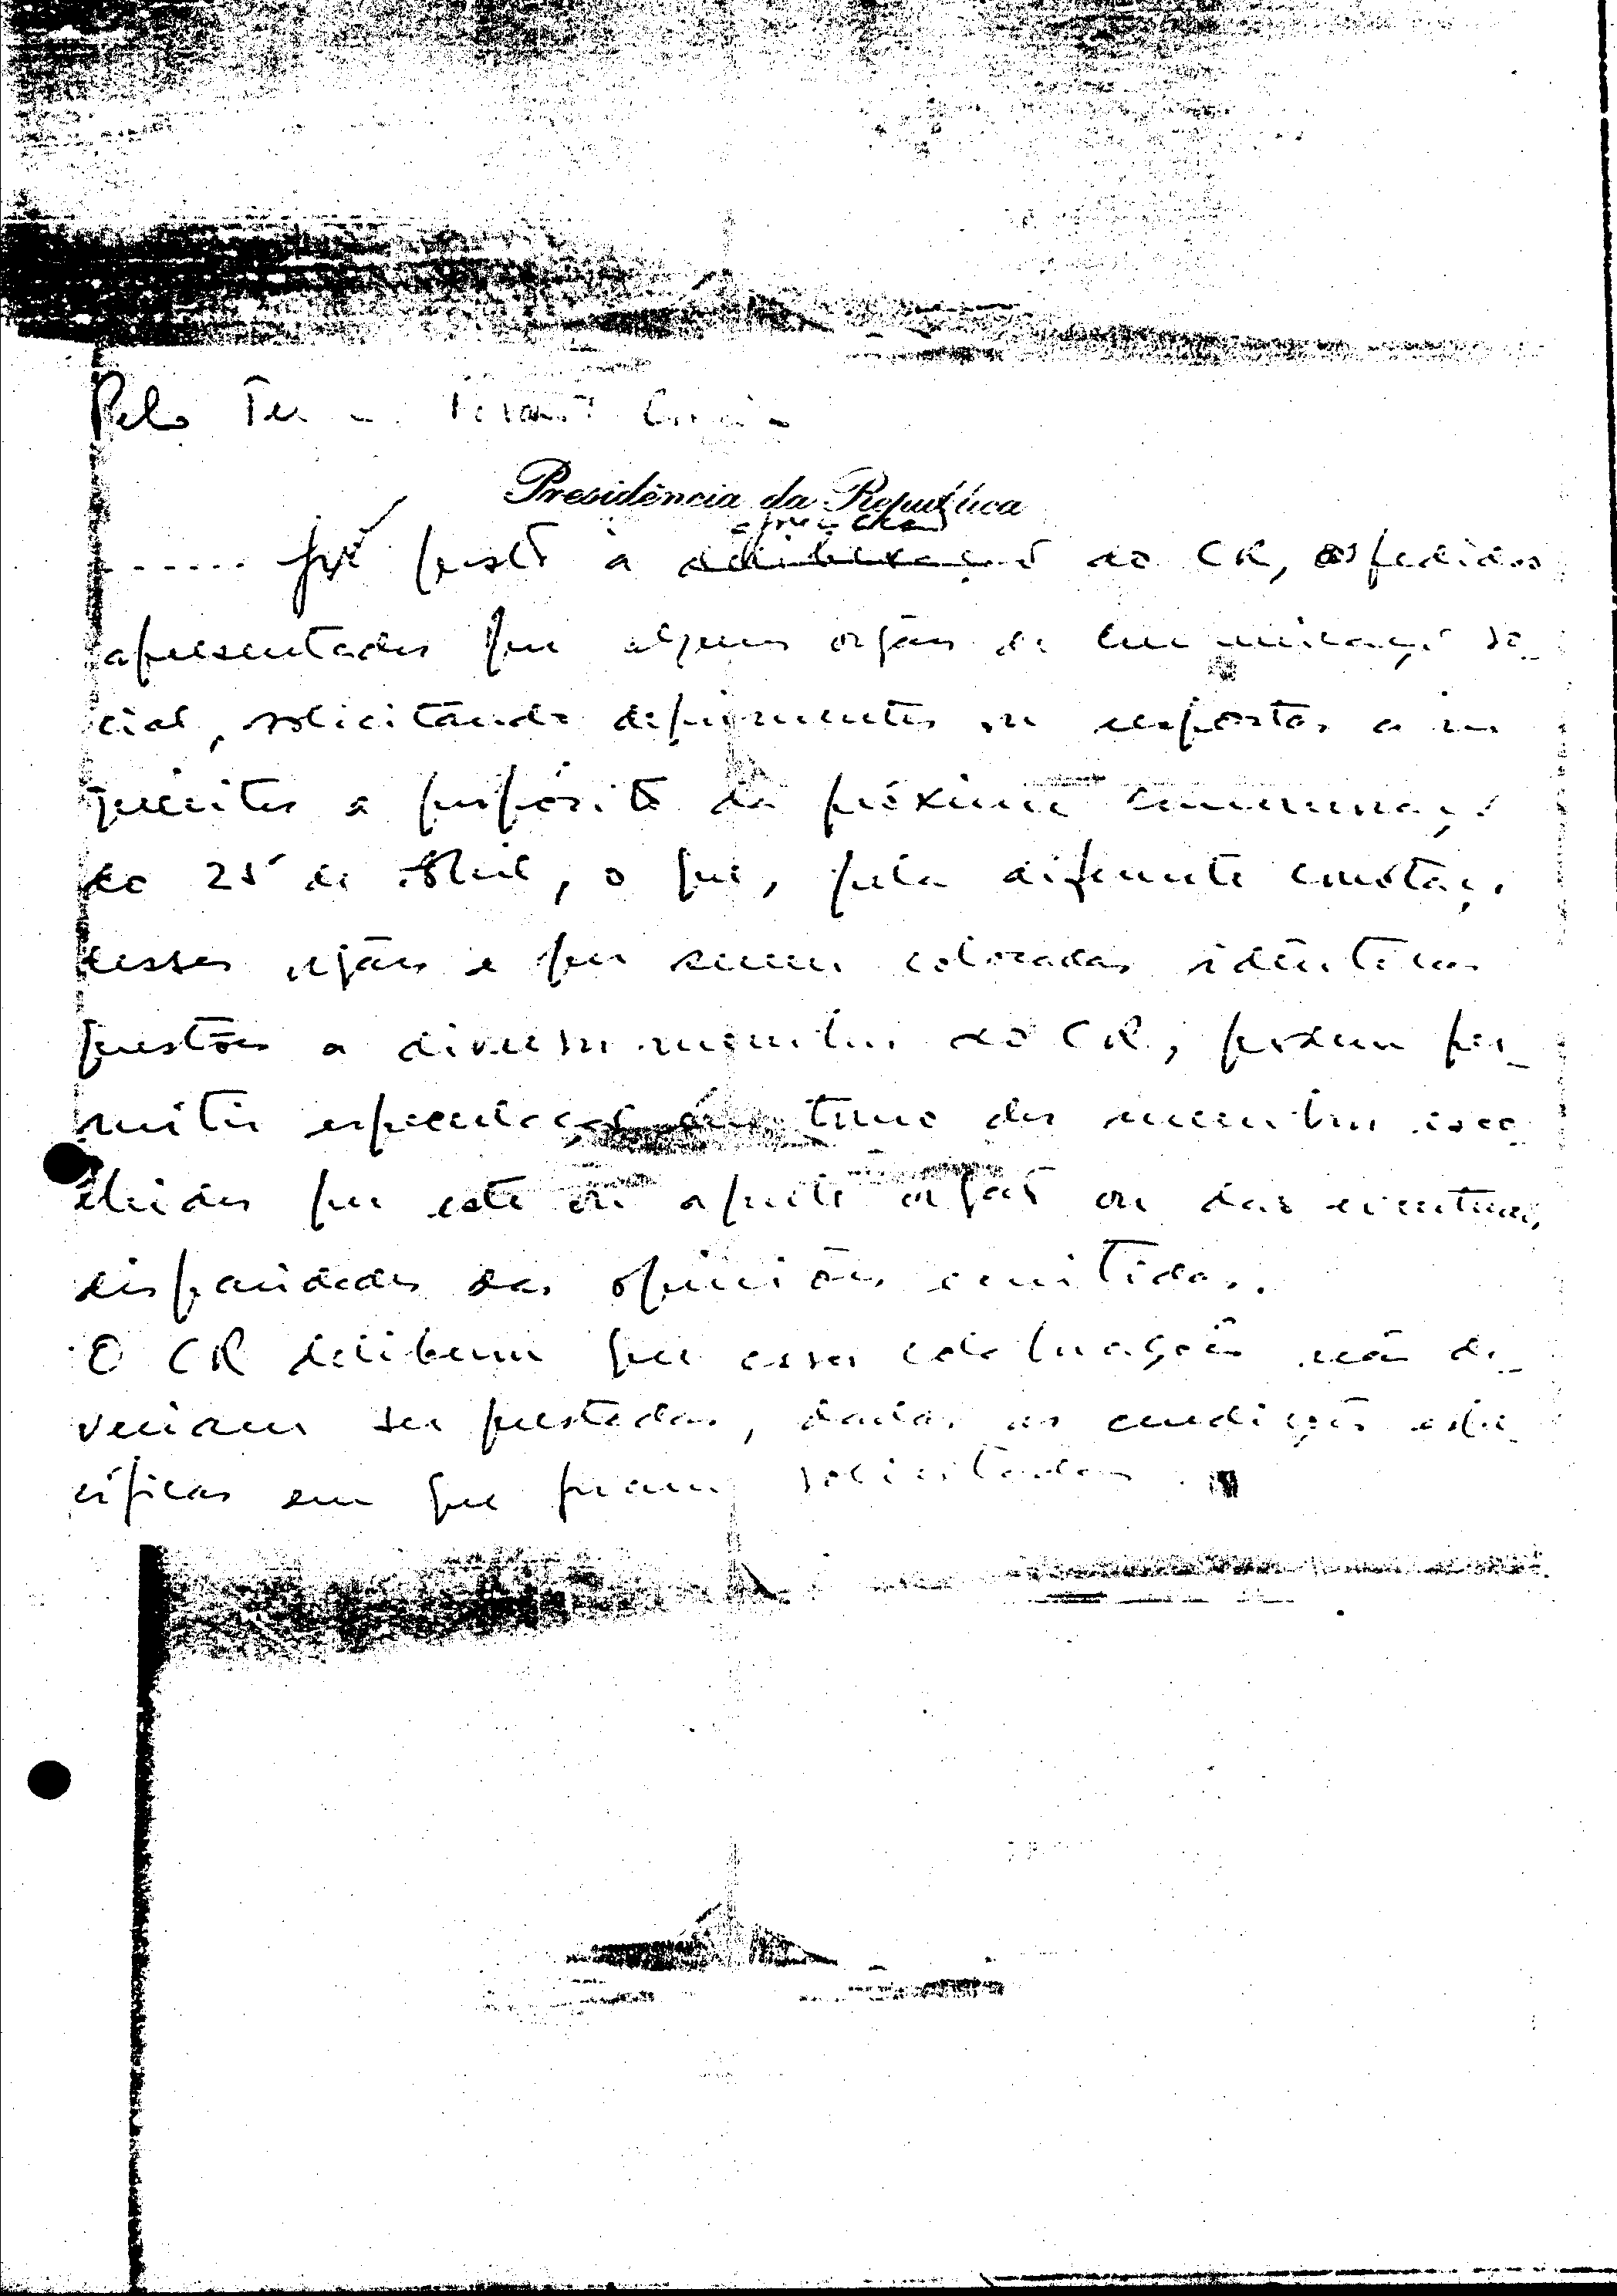 Pelo Ten
Presidência da República
apreciação
...... foi posto à deliberação do CR, os pedidos
apresentados por alguns orgãos de comunicação so-
cial, solicitando depoimentos ou respostas a in
quéritos a propósito da próxima comemoração
do 25 de Abril, o que, pela diferente conotação
desses orgãos e por serem colocadas idênticas
questões a diversos membros do CR, podem per-
mitir especulações em torno dos membros esco-
lhidos por este ou aquele orgão ou das eventuais
disparidades das opiniões emitidas.
O CR deliberou que essas colaborações não de-
veriam ser prestadas, dadas as condições espe-
cíficas em que foram solicitadas.